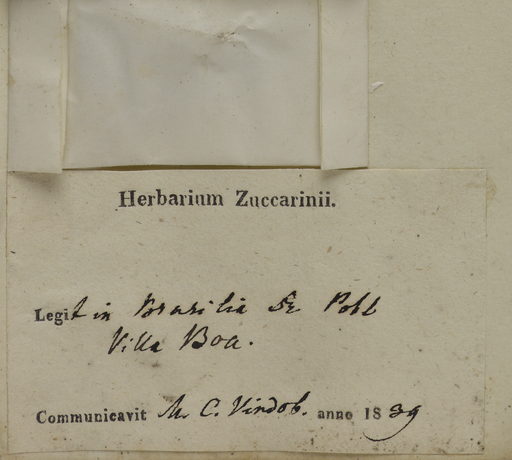 Herbarium Zuccarinii.
Legit in Brasilia Dr Pohl
Villa Boa.
Communicavit M. C. Vindob. anno 1839